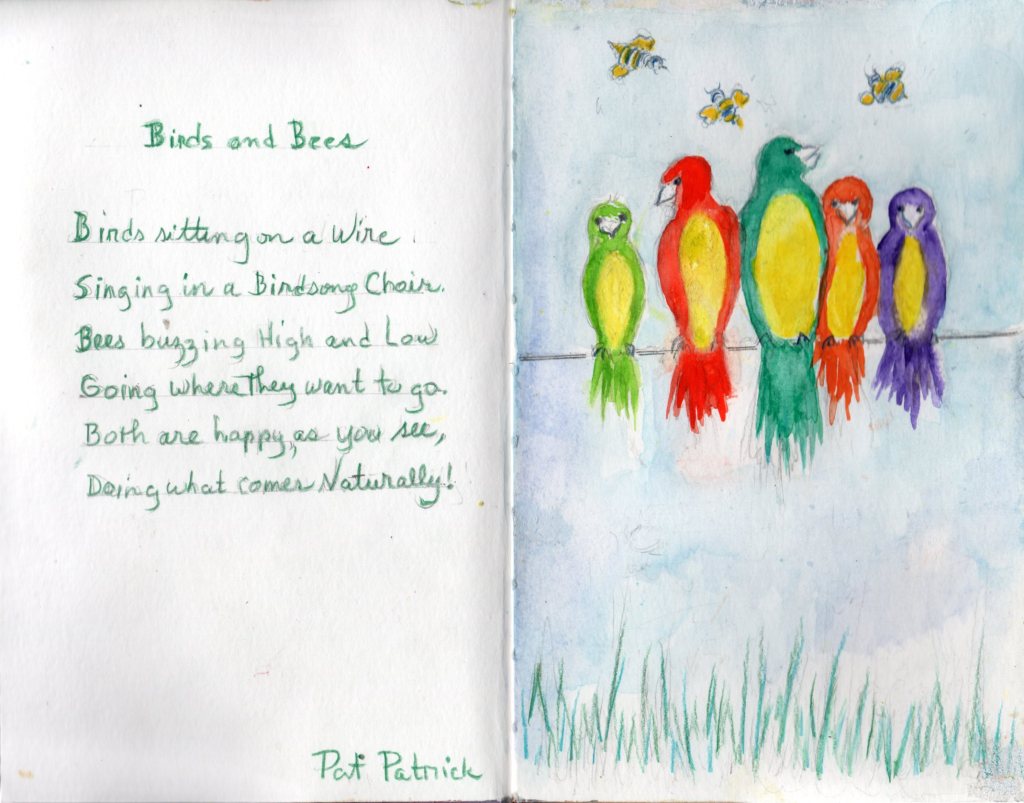 Birds and Bees
Birds sitting on a Wire
Singing in a Birdsong Choir.
Bees buzzing High and Low
Going where They want to go.
Both are happy, as you see,
Doing what comes Naturally!
Pat Patrick